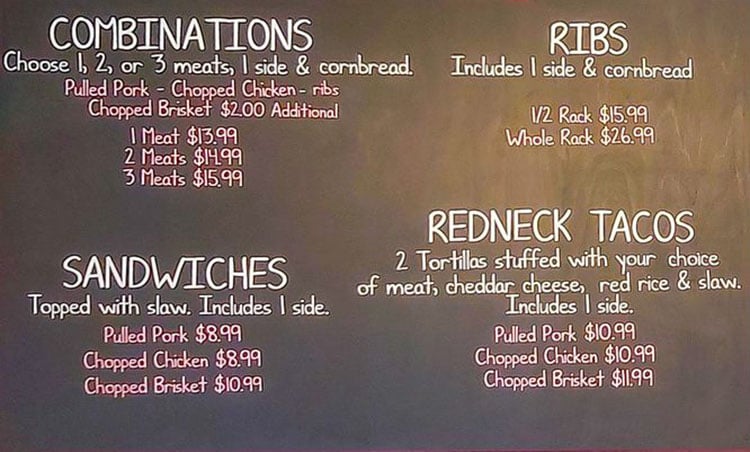 COMBINATIONS
Choose 1, 2, or 3 meats, 1 side & cornbread.
Pulled Pork - Chopped Chicken - ribs
Chopped Brisket $2.00 Additional
1 Meat $13.99
2 Meats $14.99
3 Meats $15.99
SANDWICHES
Topped with slaw. Includes 1 side.
Pulled Pork $8.99
Chopped Chicken $8.99
Chopped Brisket $10.99
RIBS
Includes 1 side & cornbread
1/2 Rack $15.99
Whole Rack $26.99
REDNECK TACOS
2 Tortillas stuffed with your choice
of meat, cheddar cheese, red rice & slaw.
Includes 1 side.
Pulled Pork $10.99
Chopped Chicken $10.99
Chopped Brisket $11.99